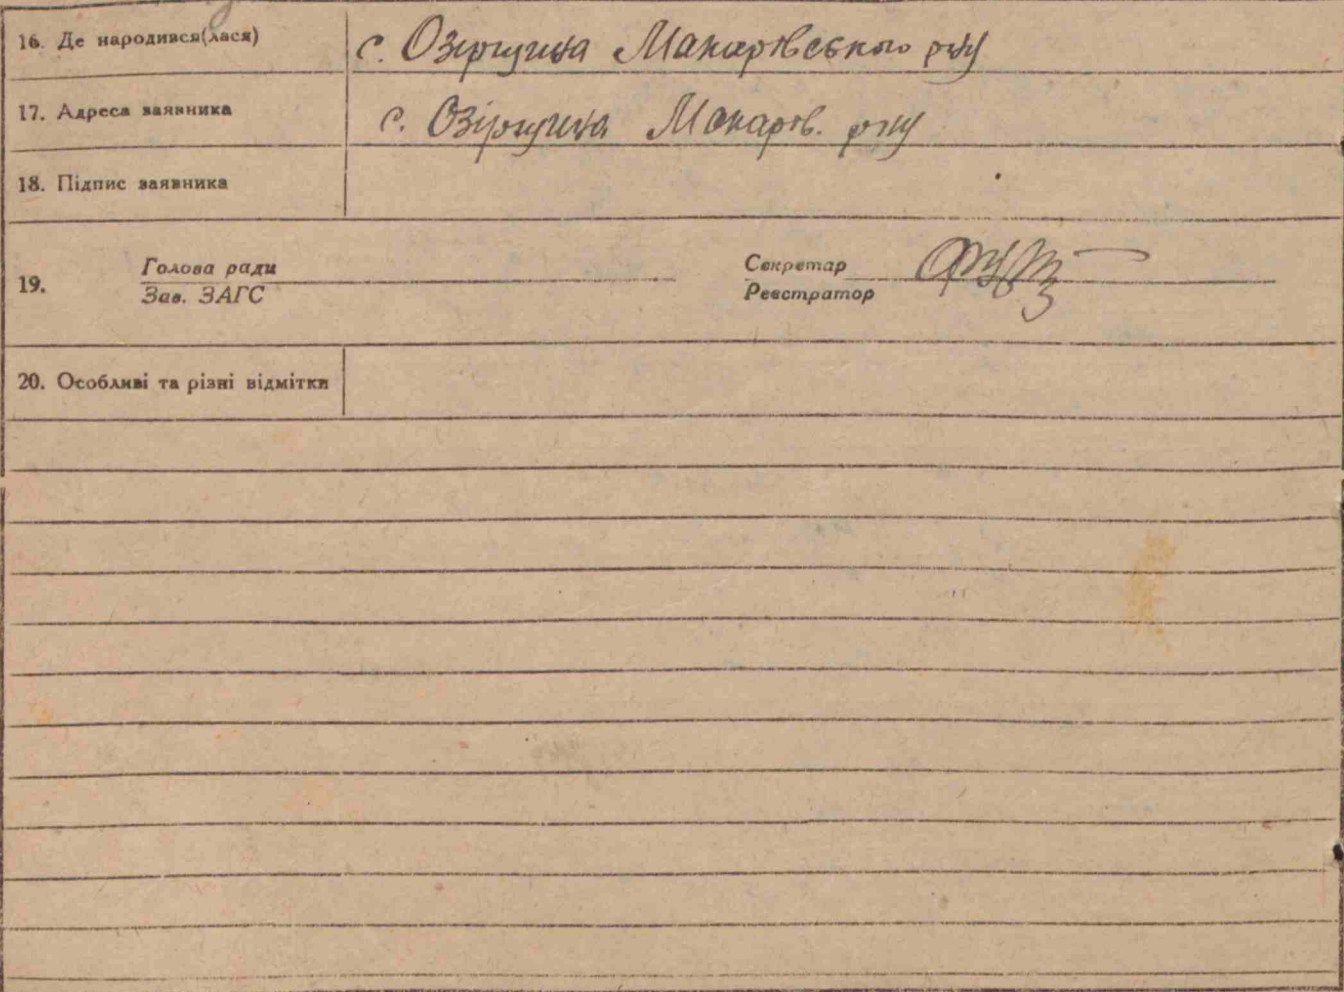 16. Де народився(лася) с. Озірщина Макарівського р-ну
17. Адреса заявника с. Озірщина Макарів. р-ну
18. Підпис заявника
19. Голова ради Секретар
Зав. ЗАГС Реєстратор
20. Особливі та різні відмітки